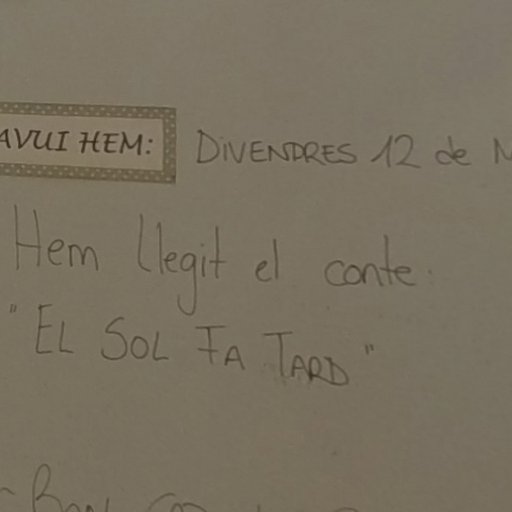 AVUI HEM: DIVENDRES 12 de
Hem llegit el conte:
"EL SOL FA TARD"